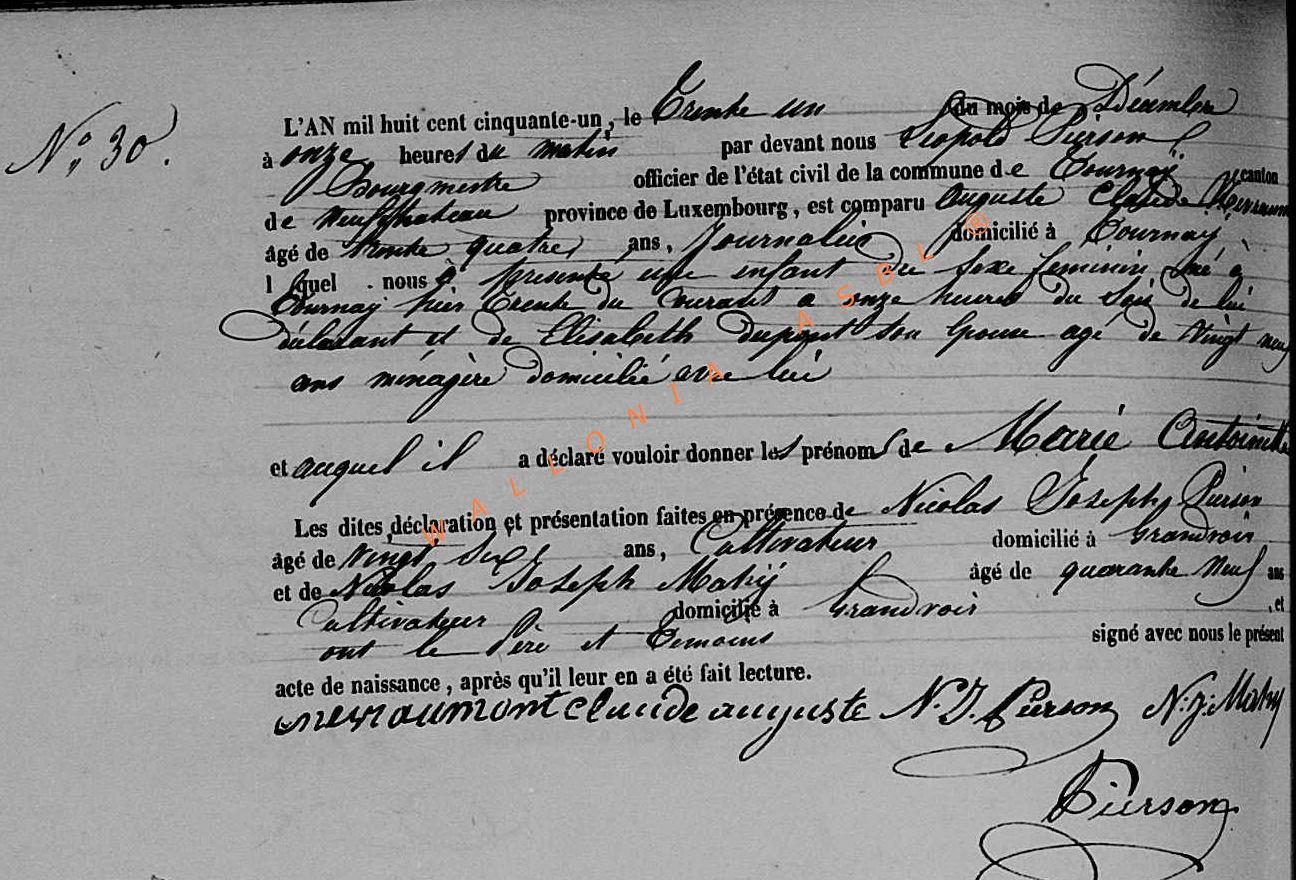 N° 30.
L'AN mil huit cent cinquante-un, le Trente un du mois de Décembre
à onze heures du matin par devant nous Léopold Pierson
Bourgmestre officier de l'état civil de la commune de Tournay canton
de Neufchateau province de Luxembourg, est comparu Auguste Claude
âgé de trente quatre ans, Journalier domicilié à Tournay
lquel nous a presenté une enfant du sexe feminin né à
Tournay hier Trente du Courant a onze heures du Soir de lui
déclarant et de Elisabeth dupont son Epouse agé de Vingt neuf
ans ménagère domicilié avec lui
et auquel il a déclaré vouloir donner les prénoms de Marie Antoinette
Les dites déclaration et présentation faites en présence de Nicolas Joseph Pierson
âgé de Vingt Six ans, Cultivateur domicilié à Grandvoir
et de Nicolas Joseph Mahy âgé de quarante Neuf ans
Cultivateur domicilié à Grandvoir , et
ont le Père et Temoins signé avec nous le présent
acte de naissance, après qu'il leur en a été fait lecture.
neuraumont claude auguste N. J. Pierson N. J. Mahy
Pierson
WALLONIA ASBL ®